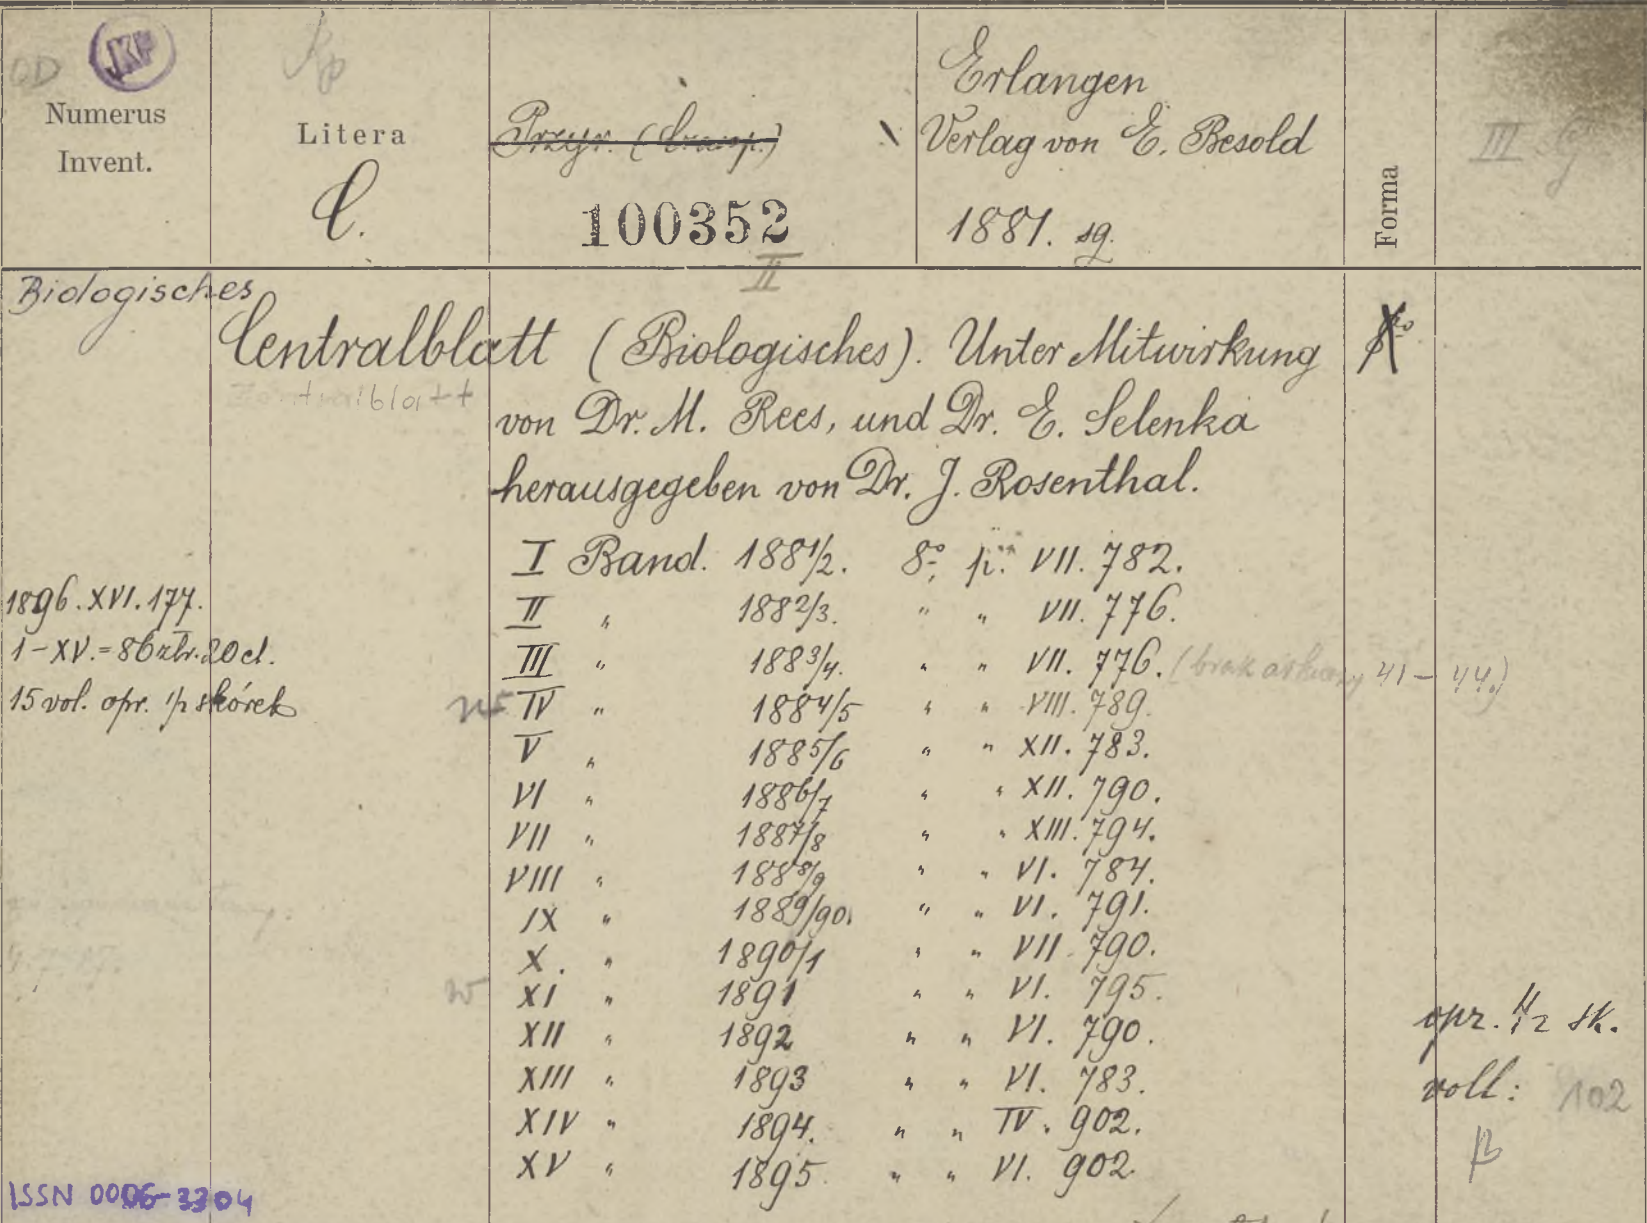 OD JKP
Numerus
Invent.
Litera
C.
Przyr. (
100352
II
Erlangen
Verlag von E. Besold
1881. sq.
Forma
III
Biologisches
Centralblatt (Biologisches). Unter Mitwirkung
Zentralblatt
von Dr. M. Rees, und Dr. E. Selenka
herausgegeben von Dr. J. Rosenthal.
I Band. 1881/2. 8º, p. VII. 782.
II " 1882/3. " " VII. 776.
III " 1883/4. " " VII. 776. (brak arkuszy 41-44.)
w IV " 1884/5 " " VIII. 789.
V " 1885/6 " " XII. 783.
VI " 1886/7 " " XII. 790.
VII " 1887/8 " " XIII. 794.
VIII " 1888/9 " " VI. 784.
IX " 1889/90. " " VI. 791.
X. " 1890/1 " " VII. 790.
w XI " 1891 " " VI. 795.
XII " 1892 " " VI. 790.
XIII " 1893 " " VI. 783.
XIV " 1894. " " IV. 902.
XV " 1895 " " VI. 902.
1896. XVI. 177.
1-XV. = 86 złr. 20 ct.
15 vol. opr. 1/2 skórek
opr. 1/2 sk.
voll: 102
ISSN 0006-3304